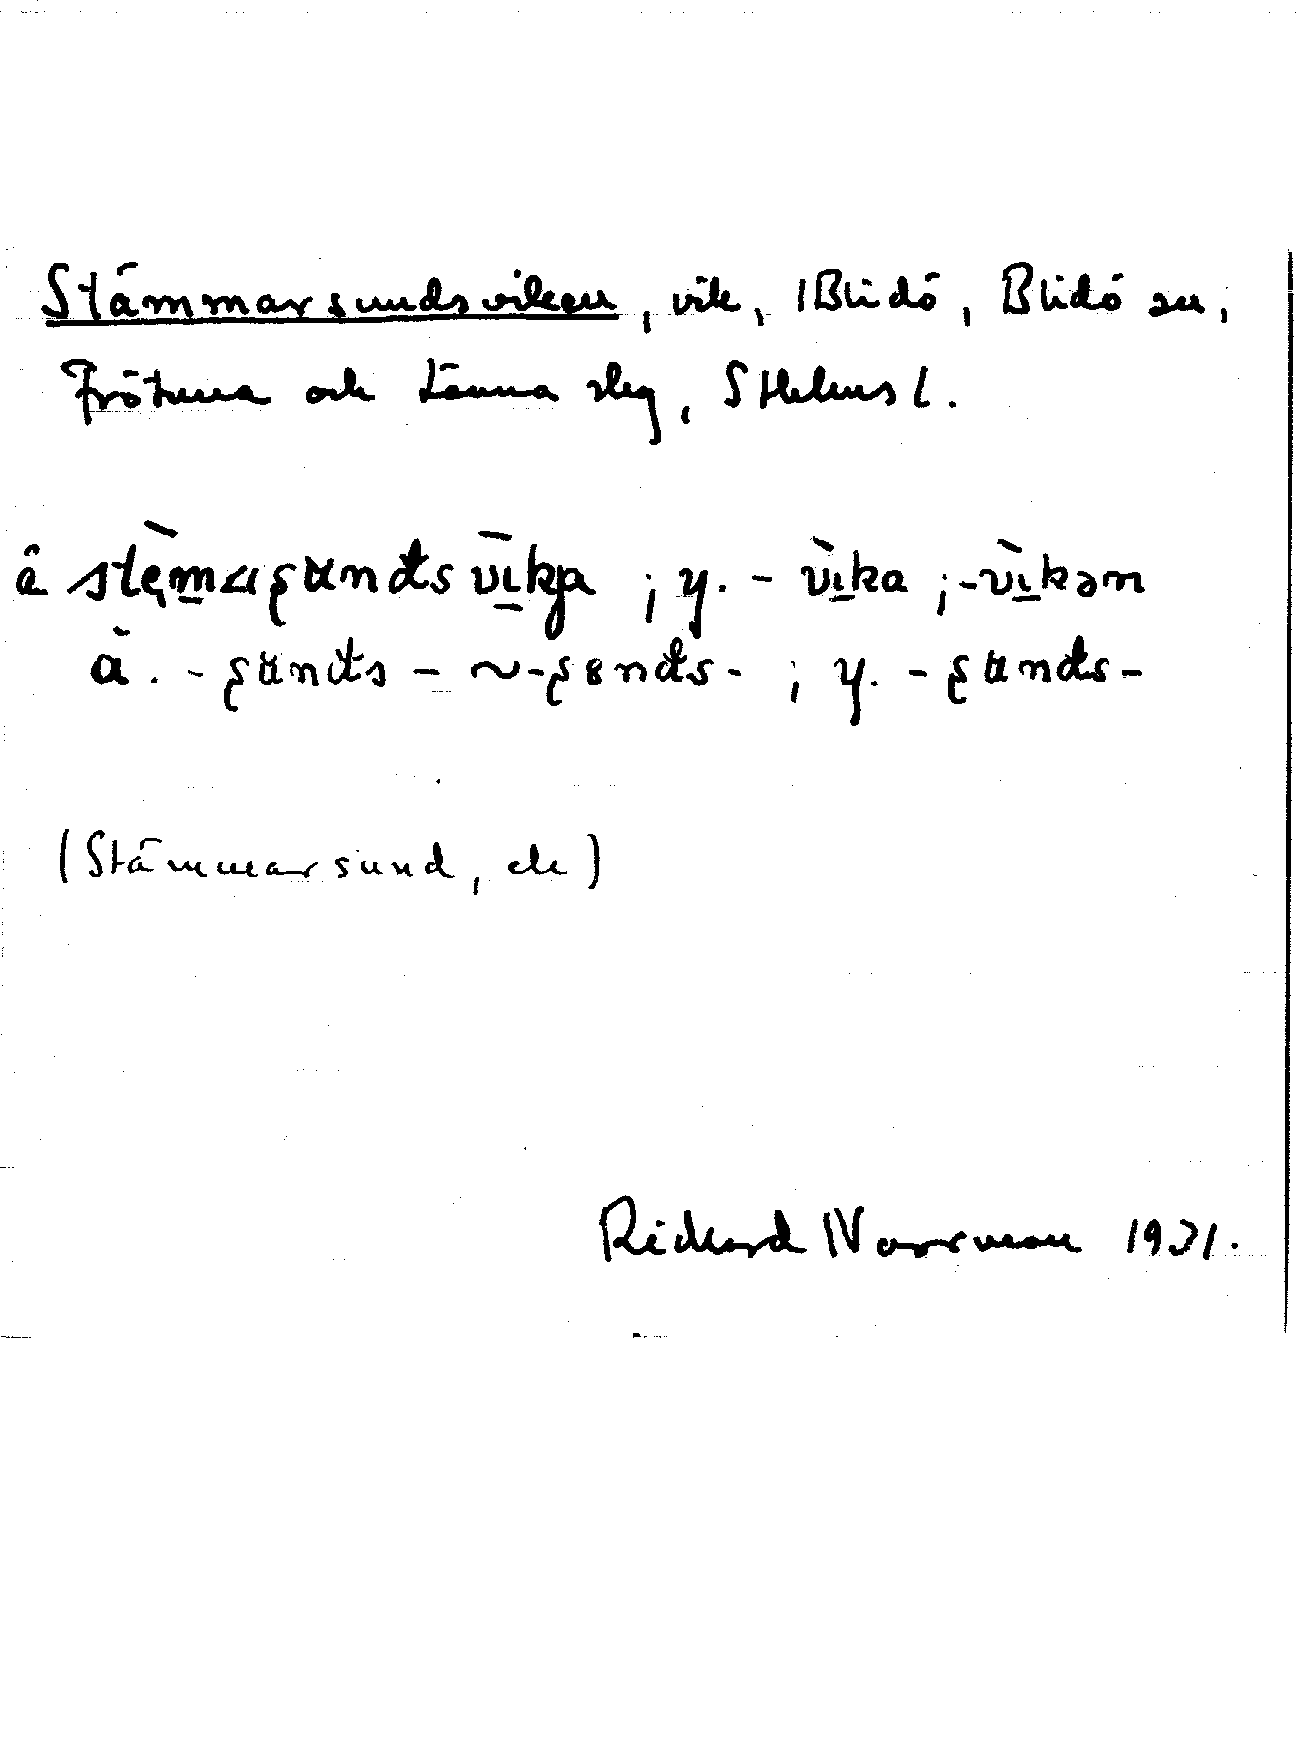 Stämmarsundsviken, vik, i Blidö, Blidö sn,
Frötuna och Länna slg, Sthlms l.
stęmaʂʉnds vīkja ; y. - vika ; - vikən
ä. - ʂʉnds - ~ - ʂɵnds - ; y. - ʂʉnds -
(Stämmarsund, )
Rickard Norrman 1931.